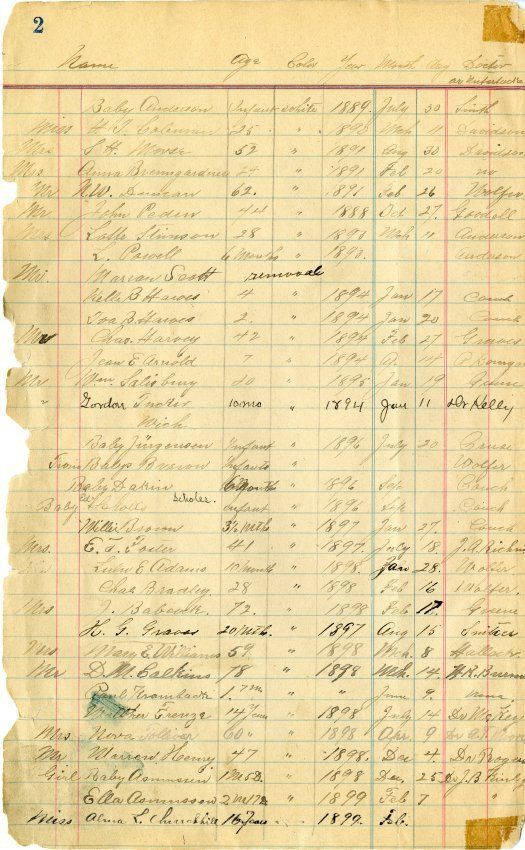 2
Name Age Color Year Month Day Doctor
or Undertaker
Baby Anderson Infant White 1889 July 30 Smith
Miss H. J. Coleman 25 " 1893 Mch 11 Davidson
Mrs S. H. Morse 52 " 1891 Aug 30 Davidson
Mrs Anna Bremgardner 24 " 1891 Feb 20 no
Mr N.W. Duncan 62. " 1891 Feb 26 Wolfer
Mr John Peden 44 " 1888 Oct 27 Goodell
Mrs Lotte Stimson 28 " 1893 Mch 11 Anderson
L. Powell 6 Months " 1893. Anderson
Mr. Marion Scott removal
Belle B Hawes 4 " 1894 Jan 17 Couch
Iva B. Hawes 2 " 1894 Jan 20 Couch
Mr Chas. Harvey 42 " 1894 Feb 27 Graves
Jean E Arnold 7 " 1894 14
Mr Wm Salisbury " 1895 Jan 19
" Gordon Tucker 10mo " 1894 Jan 11 Dr Kelly
Baby Jurgensen Infant " 1896 July 20 Cruse
Twins Babys Brown Infants " Wolfer
Baby Dakin 6 Month " 1896 Feb Couch
Scholes.
Baby Infant " 1896 Feb Couch
Willie Brown 3½ Mths " 1897 Jan 27 Couch
Mrs. E. T. Foster 41 " 1897. July 18. J.A. Richm
Lulu E Adams 10 Month " 1898 Jan 28. Wolfer
Chas Bradley 28 " 1898 Feb 16 Wolfer.
Mrs J. Babcock. 72. " 1898 Feb 17 Greene
H. G. Graves 20 Mth. " 1897 Aug 15
Mrs Mary E Williams 59 " 1898 Mch. 8 Hallock
Mr D. M. Calkins 78 " 1898 Mch. 14.
Paul Kromback 1. 7m " " June 9.
Frenze 14 Years " 1898 July 14
Mrs. Nora Toliver 60 " " 1898 Apr. 9
Mr. Warren Henry 47 " 1898. Dec 4. Dr Rogers
Girl Baby Asmusen " 1898 Dec, 25 Dr J.B.
Ella Asmusson " 1899 Feb 7 "
Miss Alma L. Churchhill 16 Years " 1899. Feb.